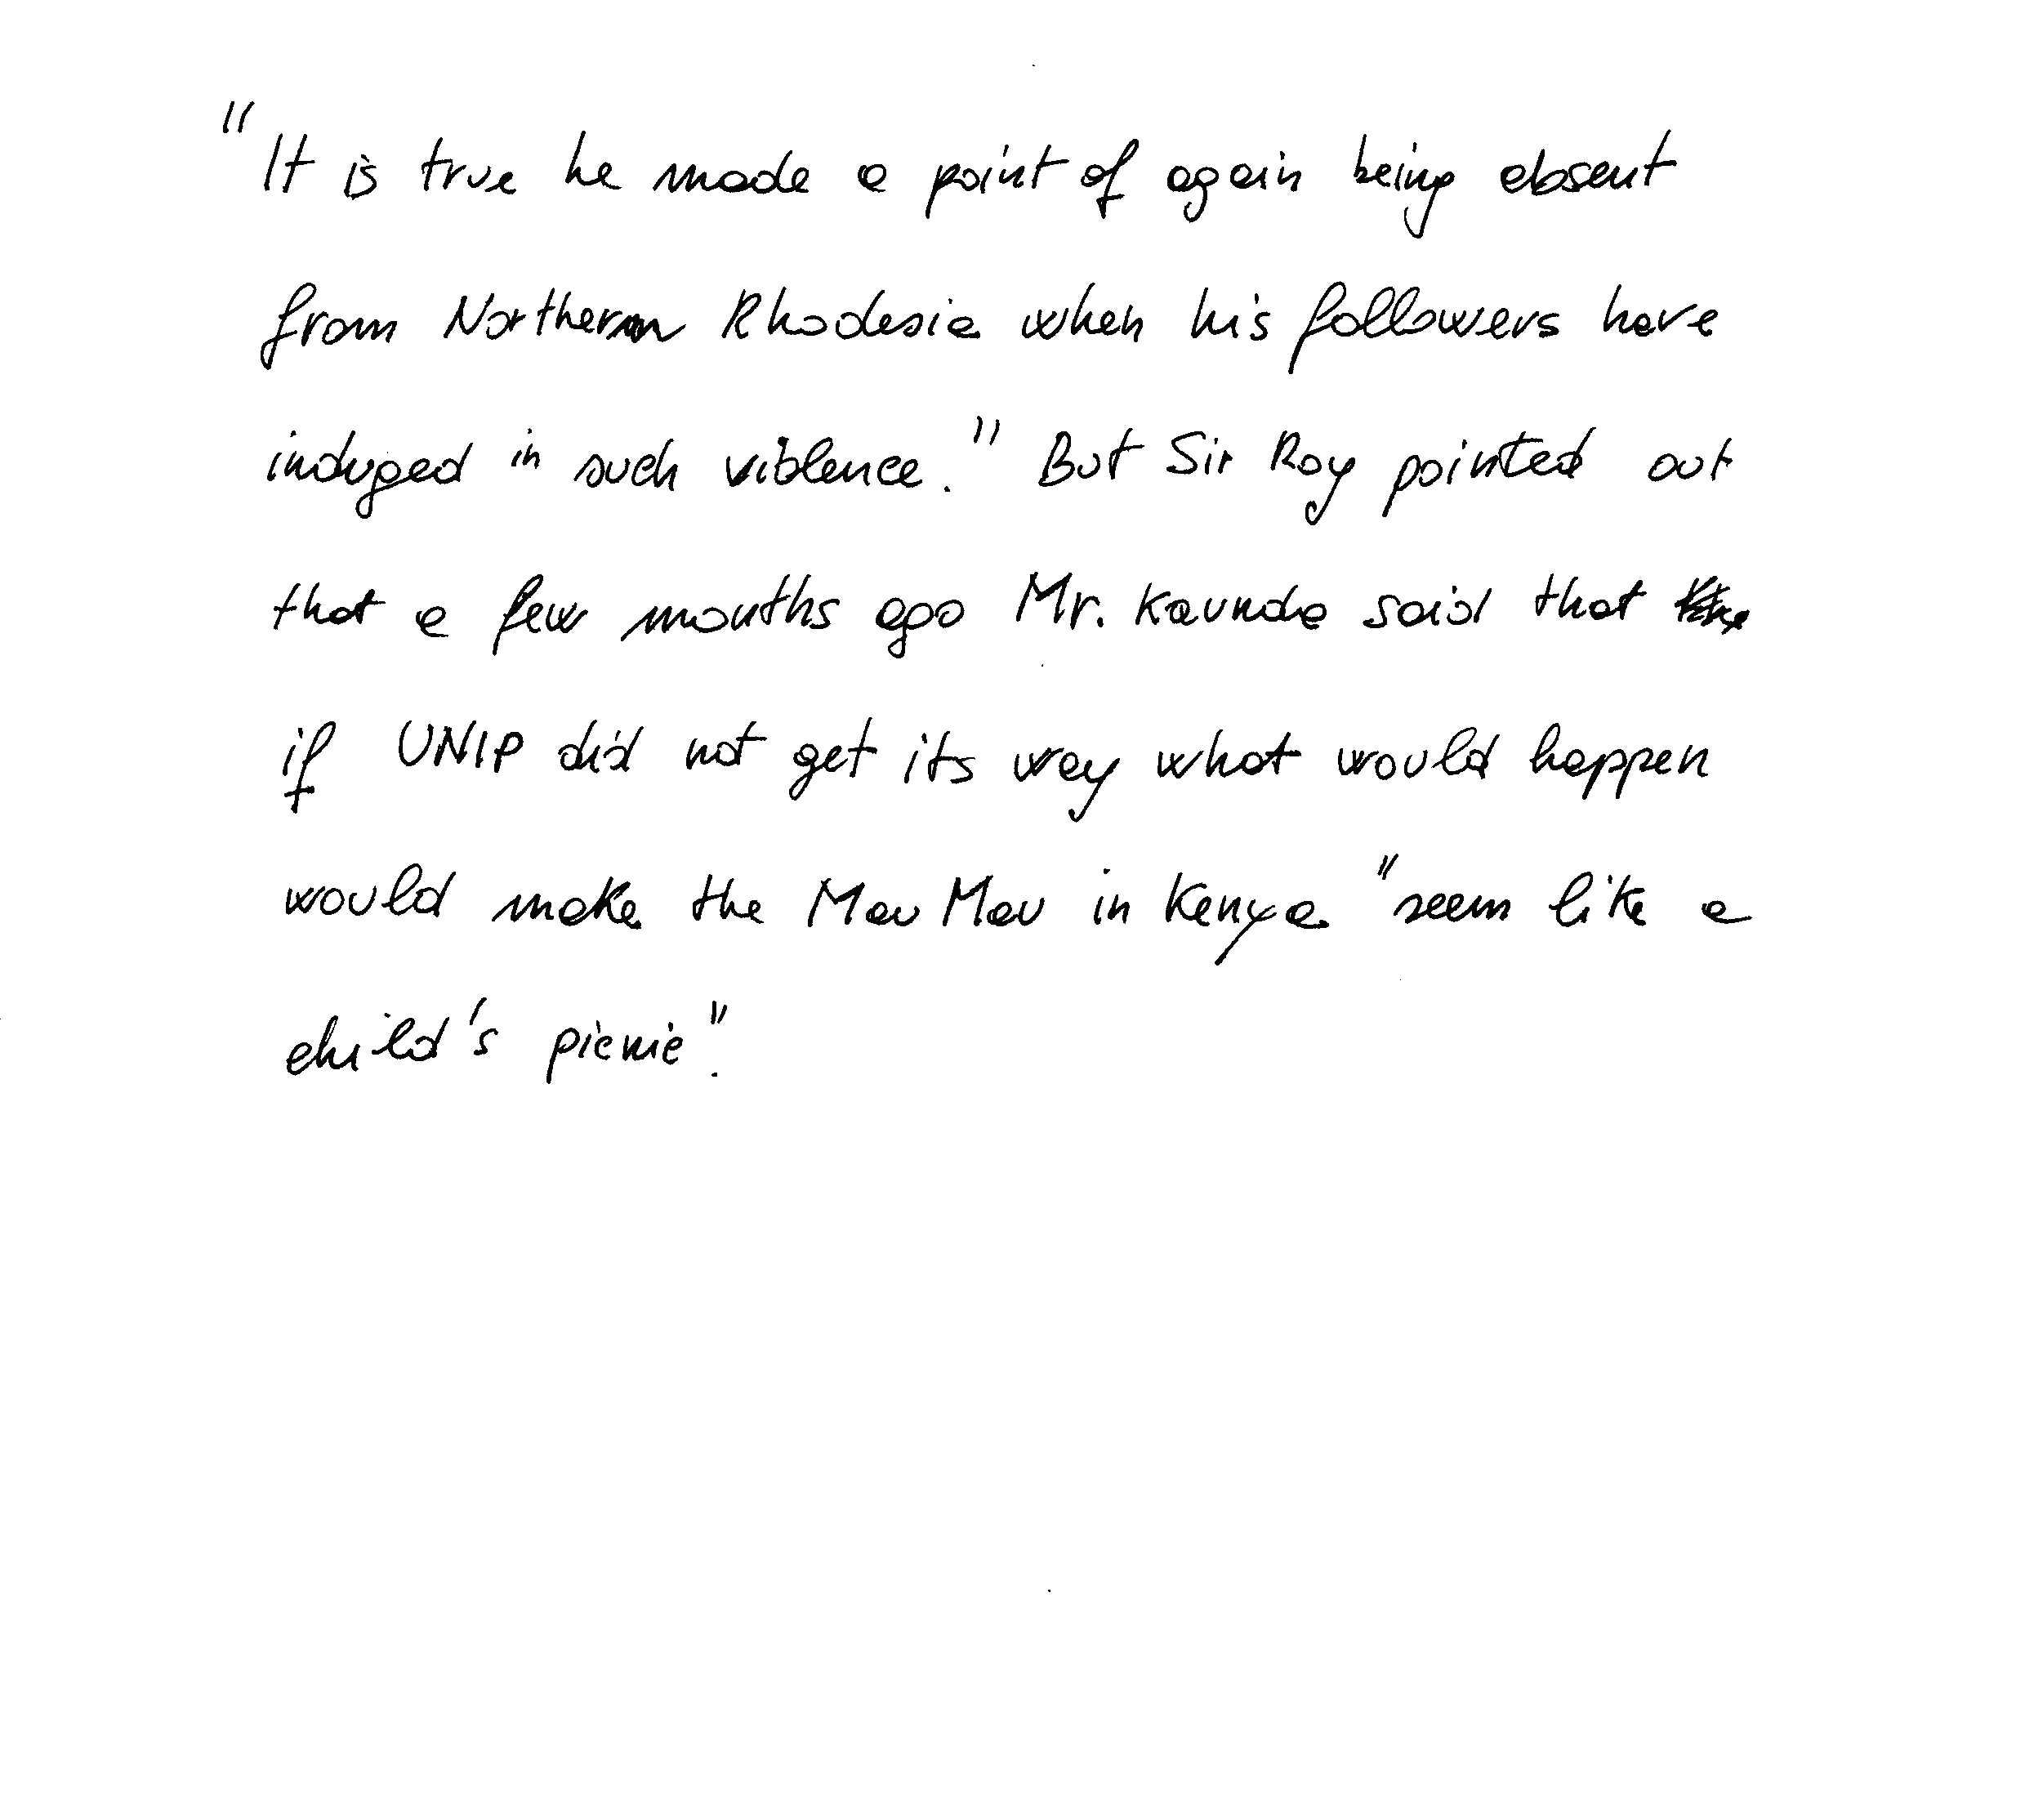 "It is true he made a point of again being absent
from Northern Rhodesia when his followers have
indulged in such violence." But Sir Roy pointed out
that a few months ago Mr. Kaunda said that
if UNIP did not get its way what would happen
would make the Mau Mau in Kenya "seem like a
child's picnic".